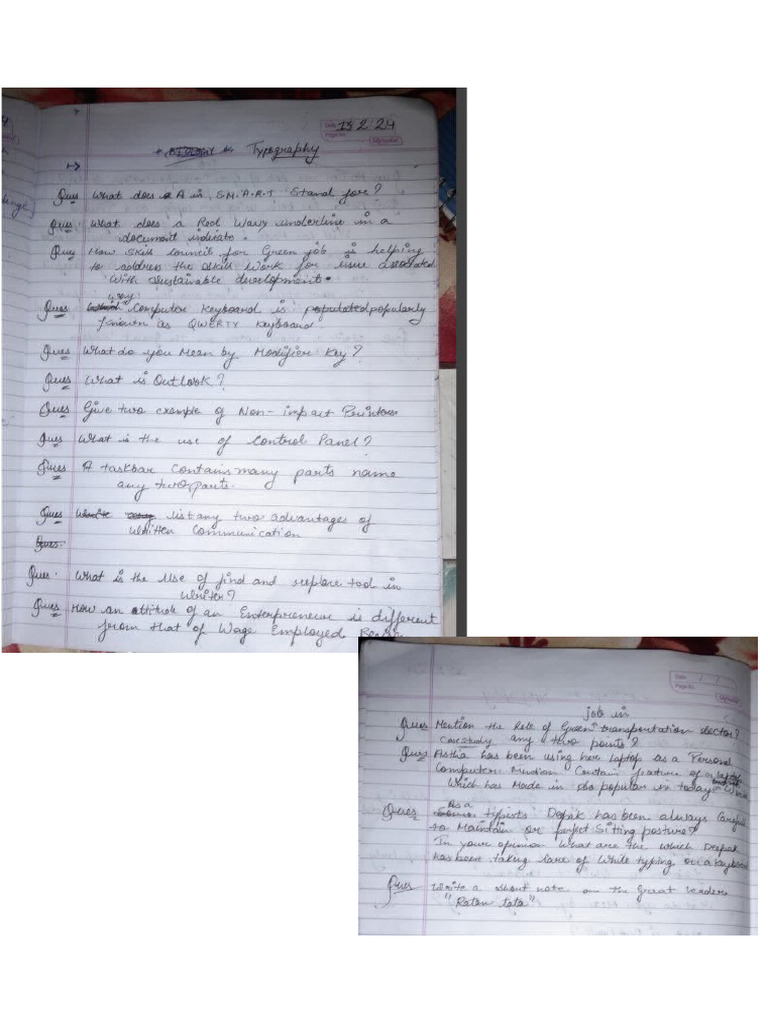 Date 15 2 24
Page No.
Typography
Ques What does A in S.M.A.R.T Stand for?
Ques. What does a Red Wavy underline in a
document indicate.
Ques How Skill Council for Green job is helping
to address the skill Work for issue associated
With Sustainable development.
why
Ques Computer Keyboard is populated popularly
known as QWERTY Keyboard.
Ques What do you Mean by Modifier Key?
Ques What is Outlook?
Ques Give two example of Non-impact Printers
Ques What is the use of Control Panel?
Ques A taskbar Contains many parts name
any two parts.
Ques Write list any two advantages of
Written Communication
Ques.
Ques. What is the Use of find and replace tool in
Writer?
Ques How an attitude of an Enterpreneur is different
from that of Wage Employed
Date
Page No.
job in
Ques Mention the Role of Green transportation sector?
Case study any two points?
Ques Astha has been using her laptop as a Personal
Computer. Mention Contain feature of a laptop
Which has Made in popular in today
As a
Ques typists Depak has been always Careful
to Maintain or perfect Sitting posture?
In your opinion What are the which Deepak
has been taking care of While typing on a keyboard
Ques Write a short note on the Great leaders
"Ratan tata"